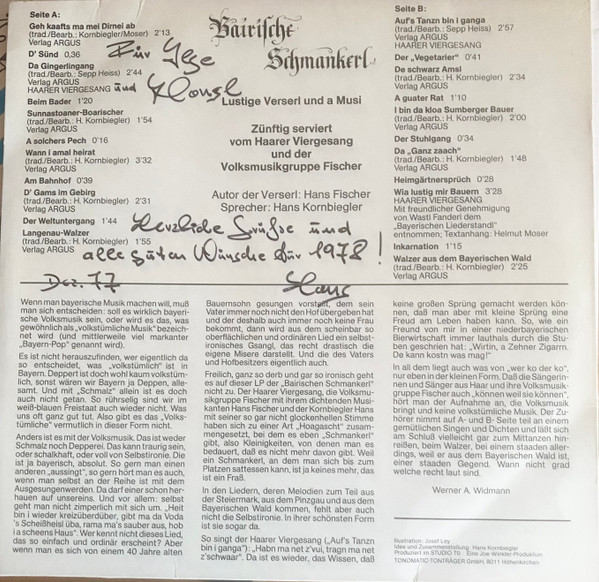 Seite A:
Geh kaafts ma mei Dirnei ab
(trad./Bearb.: Kornbiegler/Moser) 2'13
Verlag ARGUS
D' Sünd 0,36
Da Gingerlingang
(trad./Bearb.: Sepp Heiss) 2'44
Verlag ARGUS
HAARER VIERGESANG
Beim Bader 1'20
Sunnastoaner-Boarischer
(trad./Bearb.: H. Kornbiegler) 1'54
Verlag ARGUS
A solchers Pech 0'16
Wann i amal heirat
(trad./Bearb.: H. Kornbiegler) 3'32
Verlag ARGUS
Am Bahnhof 0'39
D' Gams im Gebirg
(trad./Bearb.: H. Kornbiegler) 2'31
Verlag ARGUS
Der Weltuntergang 1'44
Langenau-Walzer
(trad./Bearb.: H. Kornbiegler) 1'55
Verlag ARGUS
Bairische
Schmankerl
Für
und
Lustige Verserl und a Musi
Zünftig serviert
vom Haarer Viergesang
und der
Volksmusikgruppe Fischer
Autor der Verserl: Hans Fischer
Sprecher: Hans Kornbiegler
Herzliche Grüße und
alle guten Wünsche für 1978!
Dez. 77
Hans
Seite B:
Auf's Tanzn bin i ganga
(trad./Bearb.: Sepp Heiss) 2'57
Verlag ARGUS
HAARER VIERGESANG
Der „Vegetarier“ 0'41
De schwarz Amsl
(trad./Bearb.: H. Kornbiegler) 2'34
Verlag ARGUS
A guater Rat 1'10
I bin da kloa Sumberger Bauer
(trad./Bearb.: H. Kornbiegler) 2'00
Verlag ARGUS
Der Stuhlgang 0'34
Da „Ganz zaach“
(trad./Bearb.: H. Kornbiegler) 1'48
Verlag ARGUS
Heimgärtnersprüch 0'28
Wia lustig mir Bauern 3'28
HAARER VIERGESANG
Mit freundlicher Genehmigung
von Wastl Fanderl dem
„Bayerischen Liederstandl“
entnommen, Textanhang: Helmut Moser
Inkarnation 1'15
Walzer aus dem Bayerischen Wald
(trad./Bearb.: H. Kornbiegler) 2'25
Verlag ARGUS
Wenn man bayerische Musik machen will, muß
man sich entscheiden: soll es wirklich bayeri-
sche Volksmusik sein, oder wird es das, was
gewöhnlich als „volkstümliche Musik“ bezeich-
net wird (und mittlerweile viel markanter
„Bayern-Pop“ genannt wird).
Es ist nicht herauszufinden, wer eigentlich da
so entscheidet, was „volkstümlich“ ist in
Bayern. Deppert ist doch wohl kaum volkstüm-
lich, sonst wären wir Bayern ja Deppen, alle-
samt. Und mit „Schmalz“ allein ist es doch
auch nicht getan. So rührselig sind wir im
weiß-blauen Freistaat auch wieder nicht. Was
uns oft ganz gut tut. Also gibt es das „Volks-
tümliche“ vermutlich in dieser Form nicht.
Anders ist es mit der Volksmusik. Das ist weder
Schmalz noch Depperei. Das kann traurig sein,
oder schalkhaft, oder voll von Selbstironie. Die
ist ja bayerisch, absolut. So gern man einen
anderen „aussingt“, so gern hört man es auch,
wenn man selbst an der Reihe ist mit dem
Ausgesungenwerden. Da darf einer schon her-
hauen auf unsereins. Und vor allem: selbst
geht man nicht zimperlich mit sich um. „Heit
bin i wieder kreizüberdüber, gibt ma da Voda
's Scheißheisl üba, rama ma's sauber aus, hob
i a scheens Haus“. Wer kennt nicht dieses Lied,
das so einfach und ordinär erscheint? Aber
wenn man es sich von einem 40 Jahre alten
Bauernsohn gesungen vorstellt, dem sein
Vater immer noch nicht den Hof übergeben hat
und der deshalb auch immer noch keine Frau
bekommt, dann wird aus dem scheinbar so
oberflächlichen und ordinären Lied ein selbst-
ironisches Gsangl, das recht drastisch die
eigene Misere darstellt. Und die des Vaters
und Hofbesitzers eigentlich auch.
Freilich, ganz so derb und gar so ironisch geht
es auf dieser LP der „Bairischen Schmankerl“
nicht zu. Der Haarer Viergesang, die Volksmu-
sikgruppe Fischer mit ihrem dichtenden Musi-
kanten Hans Fischer und der Kornbiegler Hans
mit seiner so gar nicht glockenhellen Stimme
haben sich zu einer Art „Hoagascht“ zusam-
mengesetzt, bei dem es eben „Schmankerl“
gibt, also Kleinigkeiten, von denen man es
bedauert, daß es nicht mehr davon gibt. Weil
ein Schmankerl, an dem man sich bis zum
Platzen sattessen kann, ist ja keines mehr, das
ist ein Fraß.
In den Liedern, deren Melodien zum Teil aus
der Steiermark, aus dem Pinzgau und aus dem
Bayerischen Wald kommen, fehlt aber auch
nicht die Selbstironie. In ihrer schönsten Form
ist sie sogar da.
So singt der Haarer Viergesang („Auf's Tanzn
bin i ganga“): „Habn ma net z'vui, tragn ma net
z'schwaar“. Da ist es wieder, das Wissen, daß
keine großen Sprüng gemacht werden kön-
nen, daß man aber mit kleine Sprüng eine
Freud am Leben haben kann. So, wie ein
Freund von mir in einer niederbayerischen
Bierwirtschaft immer lauthals durch die Stu-
ben geschrien hat: „Wirtin, a Zehner Zigarrn.
De kann kostn was mag!“
In all dem liegt auch was von „wer ko der ko“,
nur eben in der kleinen Form. Daß die Sängerin-
nen und Sänger aus Haar und ihre Volksmusik-
gruppe Fischer auch „können weil sie können“,
hört man der Aufnahme an, die Volksmusik
bringt und keine volkstümliche Musik. Der Zu-
hörer nimmt auf A- und B- Seite teil an einem
gemütlichen Singen und Dichten und läßt sich
am Schluß vielleicht gar zum Mittanzen hin-
reißen, beim Walzer, bei einem staaden aller-
dings, weil er aus dem Bayerischen Wald ist,
einer staaden Gegend. Wann nicht grad
welche recht laut sind.
Werner A. Widmann
Illustration: Josef Ley
Idee und Zusammenstellung: Hans Kornbiegler
Produziert im STUDIO 70 : Eine Joe Winkler-Produktion
TONOMATIC-TONTRÄGER GmbH, 8011 Höhenkirchen